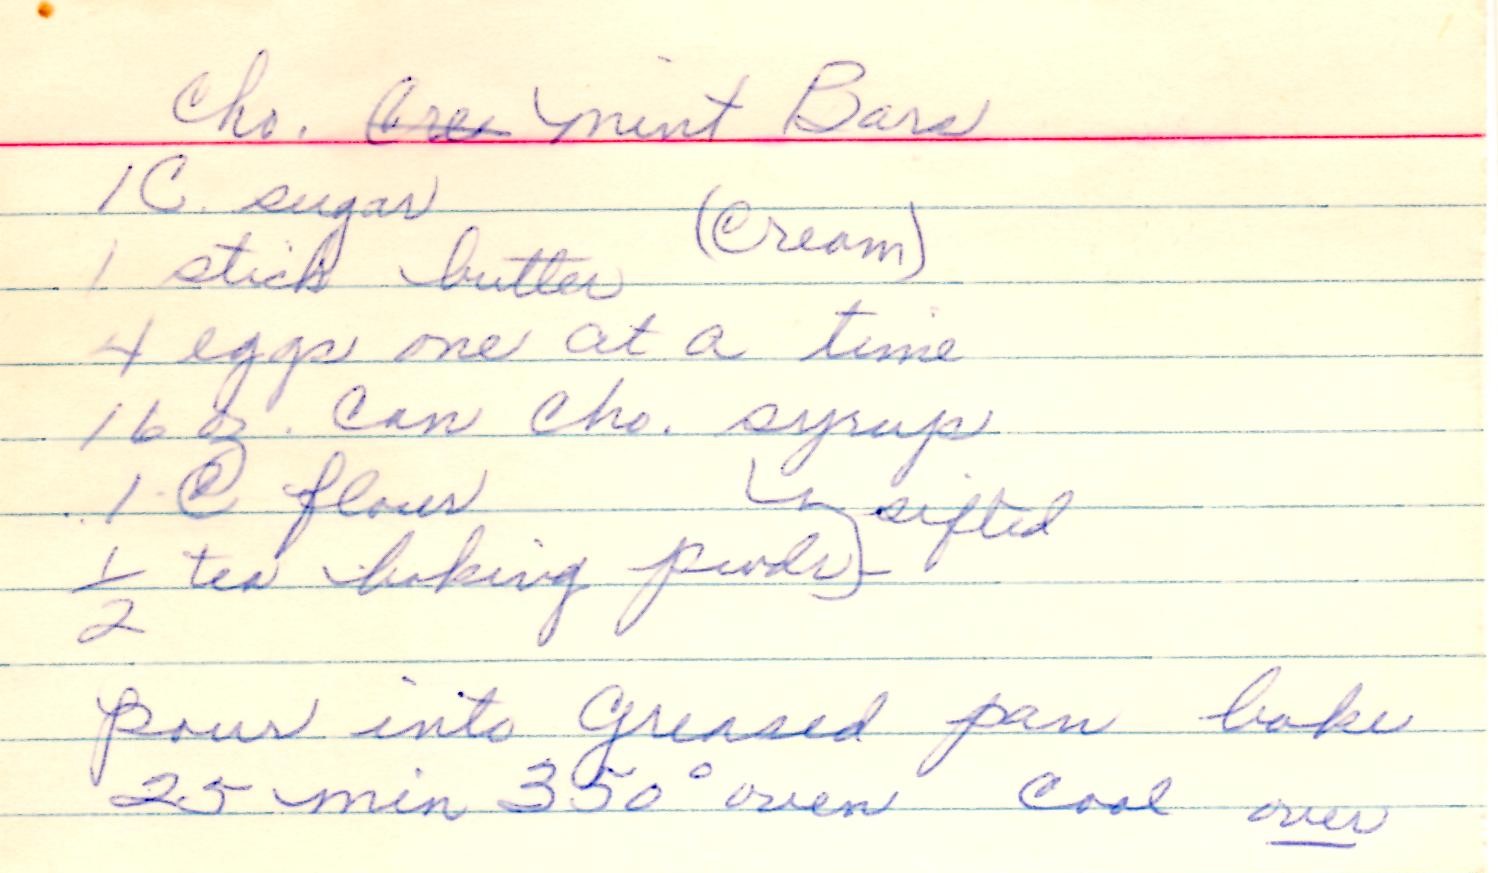 Cho. Cre mint Bars
1 C. sugar
(Cream)
1 stick butter
4 eggs one at a time
16 oz. can cho. syrup
1 C flour
sifted
1/2 tea baking powdr
pour into greased pan bake
25 min 350° oven Cool over